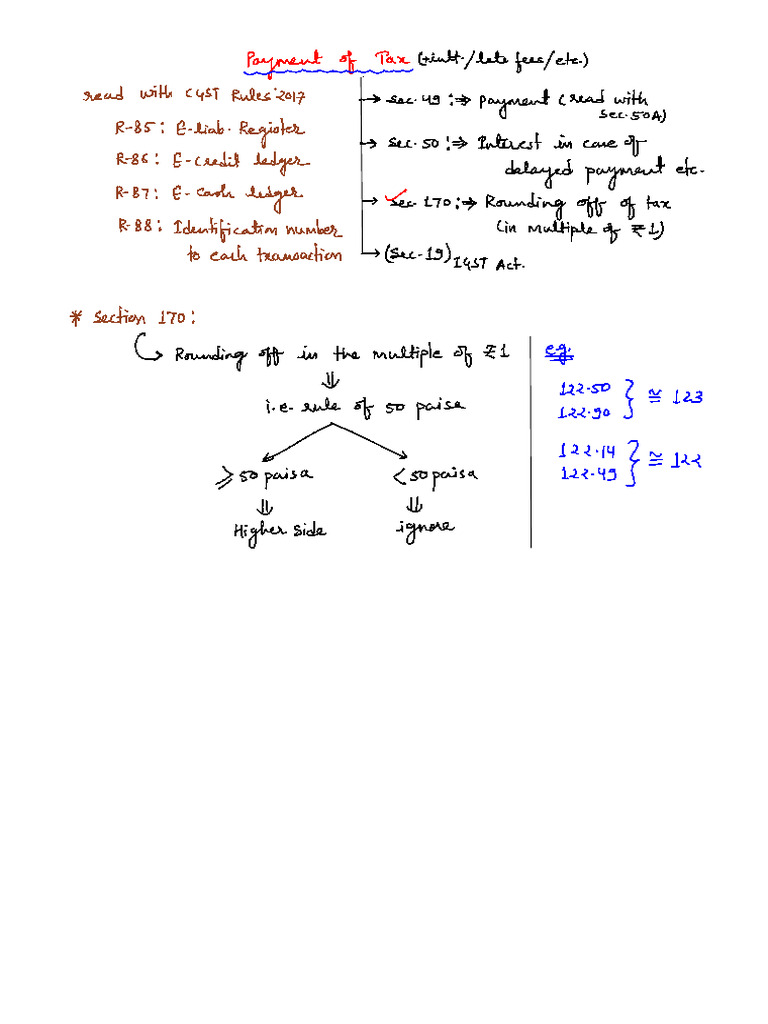 Payment of Tax (+intt./late fees/etc.)
read with CGST Rules'2017
R-85: E-liab. Register
R-86: E-credit ledger
R-87: E-cash ledger
R-88: Identification number
to each transaction
→ Sec. 49 :⇒ Payment (read with
Sec. 50A)
→ Sec. 50 :⇒ Interest in case of
delayed payment etc.
→ Sec. 170 :⇒ Rounding off of tax
(in multiple of ₹1)
→ (Sec. 19) IGST Act.
* Section 170:
Rounding off in the multiple of ₹1
⇓
i.e. rule of 50 paisa
≥ 50 paisa
⇓
Higher side
< 50 paisa
⇓
ignore
e.g.
122.50
122.90 } ≅ 123
122.14
122.49 } ≅ 122